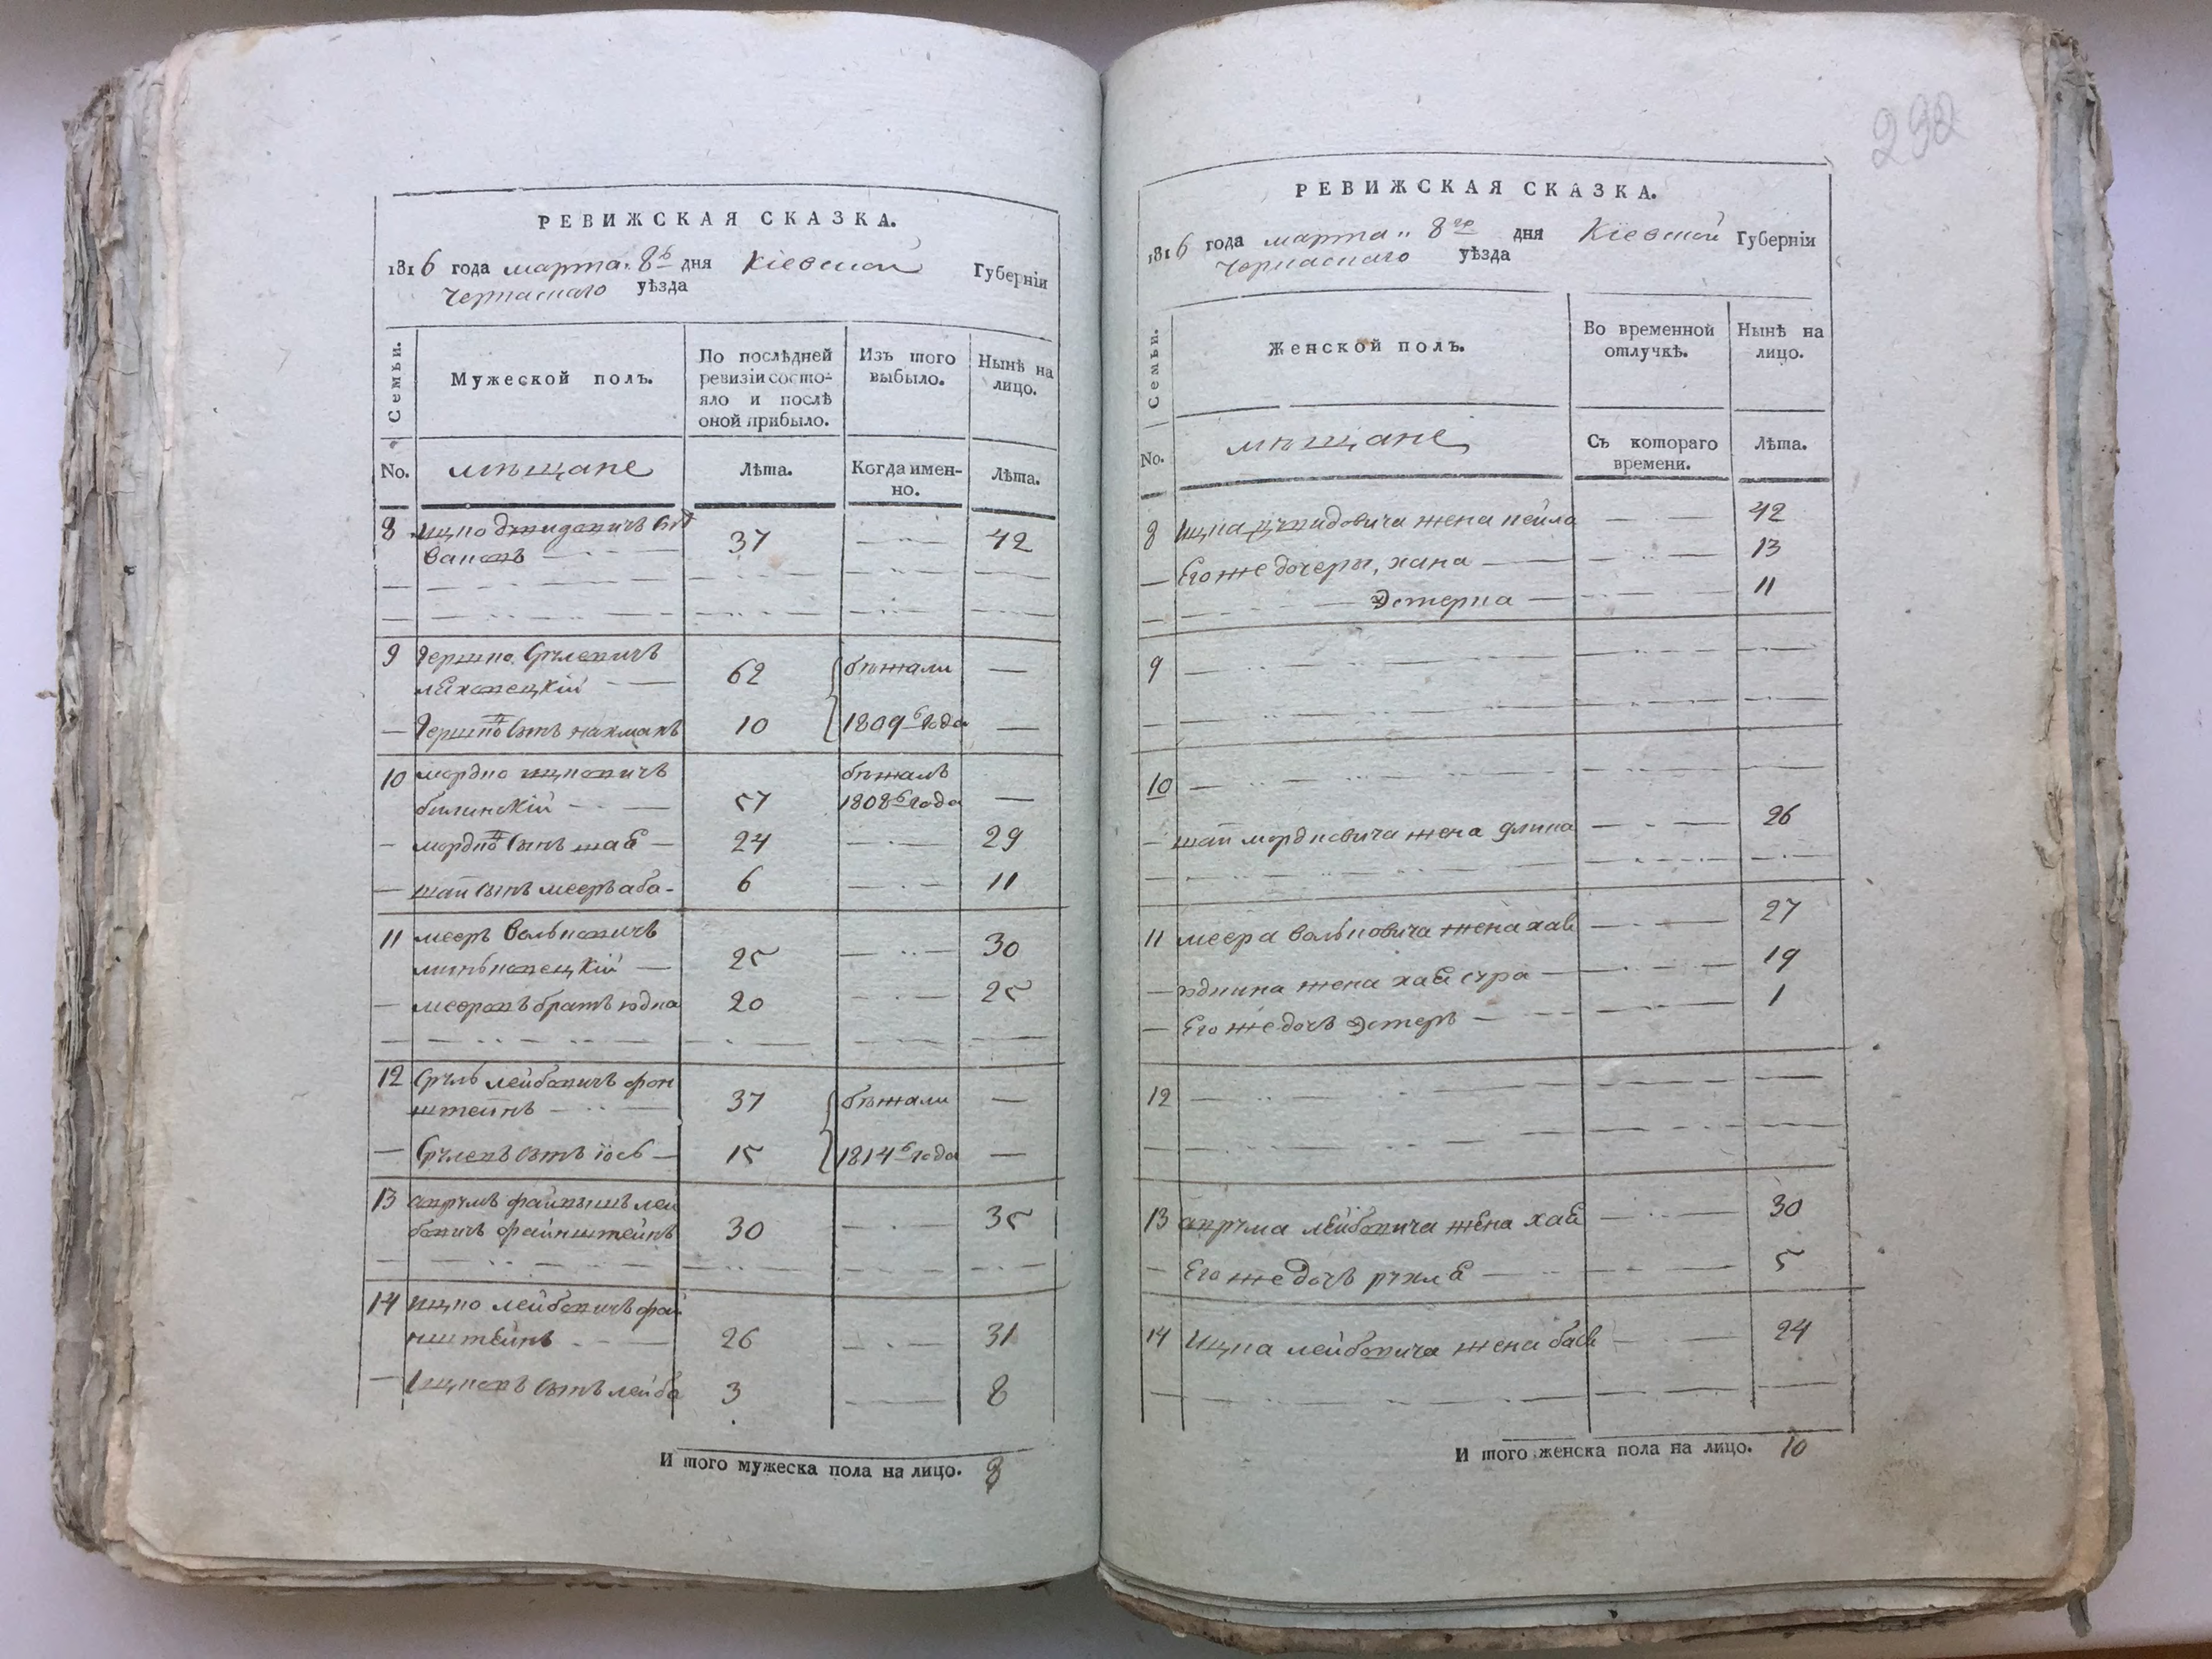 РЕВИЖСКАЯ СКАЗКА.
1816 года марта 8го дня Кіевской Губерніи
Черкаскаго уѣзда
Семьи.
Мужеской полъ.
По послѣдней ревизіи состо-
яло и послѣ
оной прибыло.
Изъ того
выбыло.
Нынѣ на
лицо.
No. мѣщане Лѣта. Когда имен-
но. Лѣта.
8 Ицко
37 — 42
9 Гершко Срулевичъ
62 бѣжали —
— Гершков сынъ нахманъ 10 1809го года —
10 мордко ицковичъ бѣжалъ
билинскій 57 1808го года —
— мордков сынъ шая 24 — 29
— шаи сынъ мееръ аба 6 — 11
11 мееръ Волковичъ
25 — 30
— мееровъ братъ юдка 20 — 25
12 Сруль лейбовичъ фон
штейнъ 37 бѣжали —
— Срулевъ сынъ іось 15 1814го года —
13 аврумъ файвишъ лей
бовичъ файнштейнъ 30 — 35
14 Ицко лейбовичъ фай
нштейнъ 26 — 31
— Ицковъ сынъ лейба 3 — 8
И того мужеска пола на лицо. 8
292
РЕВИЖСКАЯ СКАЗКА.
1816 года марта 8го дня Кіевской Губерніи
Черкаскаго уѣзда
Семьи.
Женской полъ.
Во временной
отлучкѣ.
Нынѣ на
лицо.
No. мѣщане Съ котораго
времени. Лѣта.
8 Ицка жена пейла — 42
— Его же дочери, хана — 13
Эстерка — 11
9 —
10 —
— шаи мордковича жена — 26
11 меера Вольковича жена хая — 27
— юдкина жена хая сура — 19
— Его же дочь Эстеръ — 1
12 —
13 аврума лейбовича жена хая — 30
— Его же дочь рухля — 5
14 Ицка лейбовича жена бася — 24
И того женска пола на лицо. 10